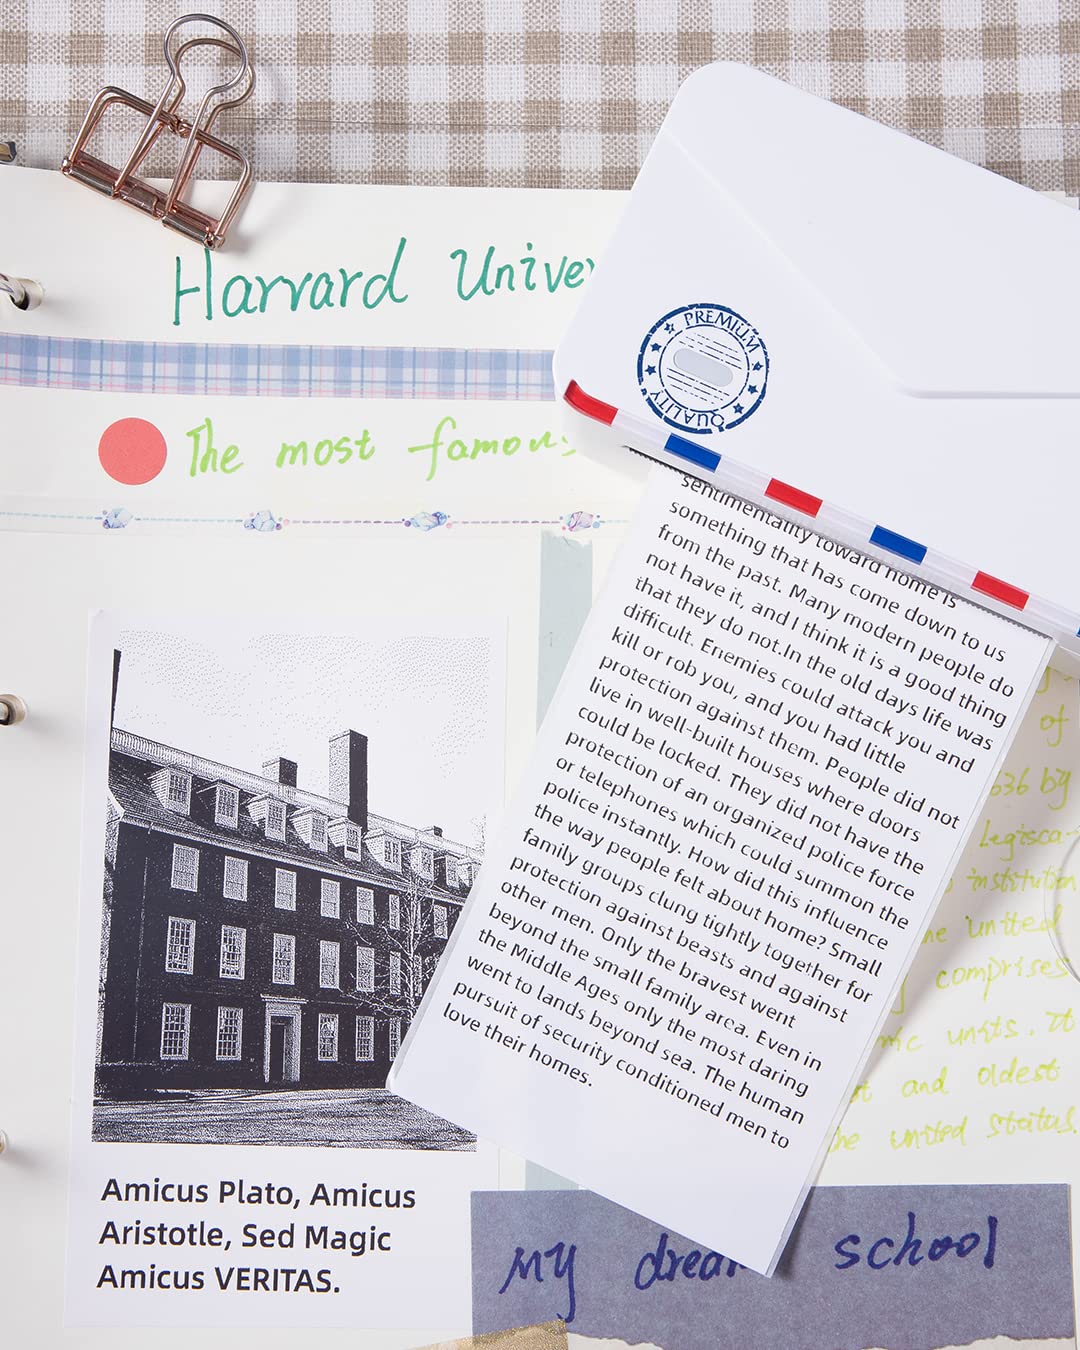 Harvard Unive
The most famous
PREMIUM
QUALITY
sentimentality toward home is
something that has come down to us
from the past. Many modern people do
not have it, and I think it is a good thing
that they do not.In the old days life was
difficult. Enemies could attack you and
kill or rob you, and you had little
protection against them. People did not
live in well-built houses where doors
could be locked. They did not have the
protection of an organized police force
or telephones which could summon the
police instantly. How did this influence
the way people felt about home? Small
family groups clung tightly together for
protection against beasts and against
other men. Only the bravest went
beyond the small family area. Even in
the Middle Ages only the most daring
went to lands beyond sea. The human
pursuit of security conditioned men to
love their homes.
of
636 by
Legisca-
institution
he united
comprises
mic units. It
st and oldest
he united statas.
Amicus Plato, Amicus
Aristotle, Sed Magic
Amicus VERITAS.
My dream school